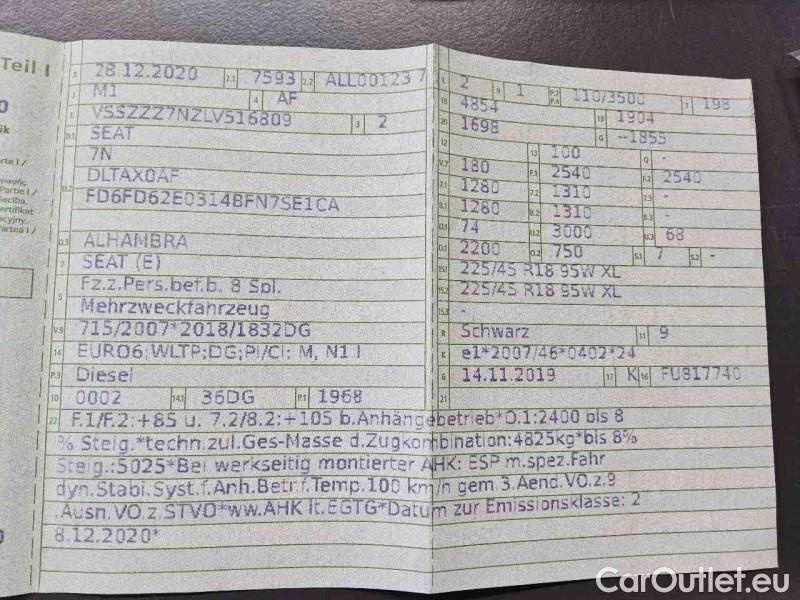 Teil I
B 28.12.2020 2.1 7593 2.2 ALL00123 7
J M1 4 AF
E VSSZZZ7NZLV516809 3 2
D.1 SEAT
7N
D.2 DLTAX0AF
FD6FD62E0314BFN7SE1CA
D.3 ALHAMBRA
2 SEAT (E)
5 Fz.z.Pers.bef.b. 8 Spl.
Mehrzweckfahrzeug
V.9 715/2007*2018/1832DG
14 EURO6;WLTP;DG;PI/CI: M, N1 I
P.3 Diesel
10 0002 14.1 36DG P.1 1968
L 2 9 1 P.2 P.4 110/3500 T 198
18 4854 19 1904
20 1698 G --1855
12 13 100 Q -
V.7 180 F.1 2540 F.2 2540
7.1 1280 7.2 1310 7.3 -
8.1 1280 8.2 1310 8.3 -
U.1 74 U.2 3000 U.3 68
O.1 2200 O.2 750 S.1 7 S.2 -
15.1 225/45 R18 95W XL
15.2 225/45 R18 95W XL
15.3 -
R Schwarz 11 9
K e1*2007/46*0402*24
6 14.11.2019 17 K 16 FU817740
21
22 F.1/F.2:+85 u. 7.2/8.2:+105 b.Anhängebetrieb*O.1:2400 bis 8
% Steig.*techn.zul.Ges-Masse d.Zugkombination:4825kg*bis 8%
Steig.:5025*Bei werkseitig montierter AHK: ESP m.spez.Fahr
dyn.Stabi.Syst.f.Anh.Betr.f.Temp.100 km/h gem.3.Aend.VO.z.9
.Ausn.VO.z.STVO*ww.AHK lt.EGTG*Datum zur Emissionsklasse: 2
8.12.2020*
CarOutlet.eu